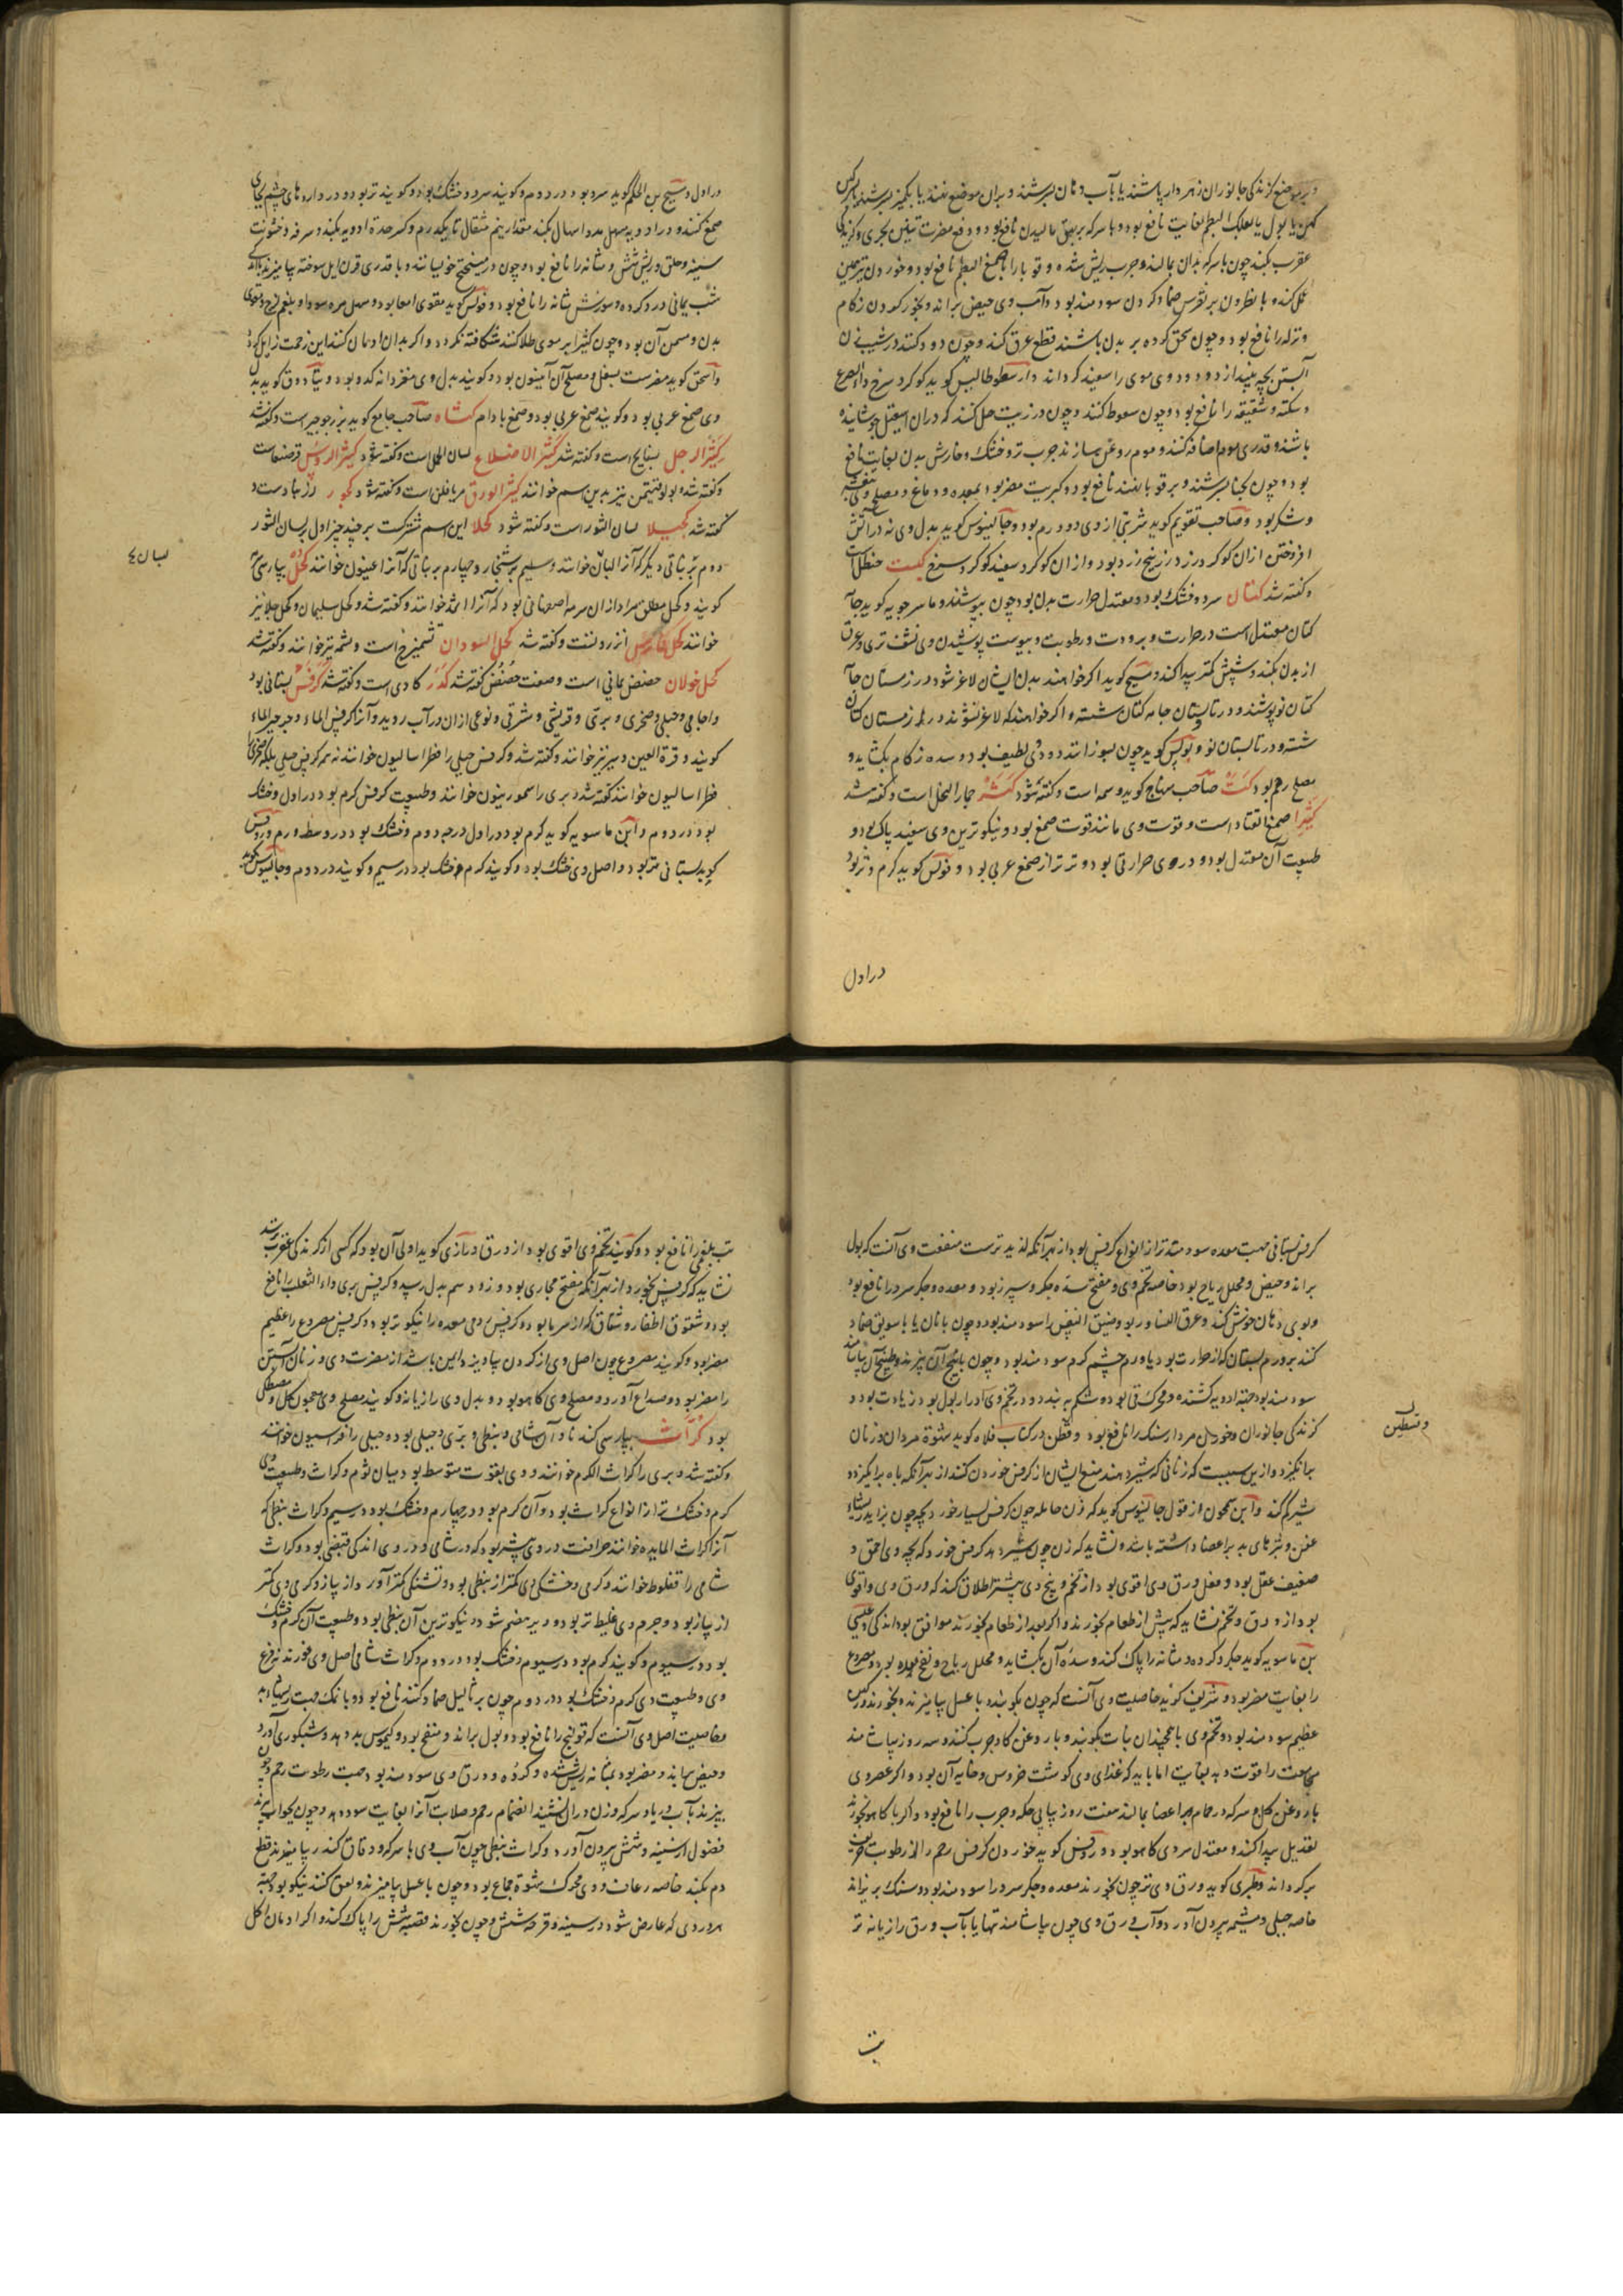 و بر موضع گزندگی جانوران زهردار پاشند یا بآب دهان بسرشند و بران موضع نهند یا بکمیز بسرشند یا سرکین
کهن یا بول یا بعلک البطم بغایت نافع بود و با سرکه بر بهق مالیدن نافع بود و دفع مضرت تنین بحری و گزندگی
عقرب بکند چون با سرکه بدان بمالند و جرب ریش شده و قوبا را با صمغ البطم نافع بود و خوردن
عمل کند و با نطرون بر نقرس ضماد کردن سودمند بود و آب وی حیض براند و بخور کردن زکام
و نزله را نافع بود و چون سحق کرده بر بدن پاشند قطع عرق کند و چون دود کنند در شیب زن
آبستن بچه بیندازد و دود وی موی را سفید کرداند و ارسطوطالیس کوید کوکرد سرخ داء الصرع
و سکته و شقیقه را نافع بود و چون سعوط کنند و چون در زیت حل کنند که دران اسقیل جوشانیده
باشند و قدری موم اضافه کنند و موم روغن بسازند جرب تر و خشک و خارش بدن بغایت نافع
بود و چون بحنا بسرشند و بر قوبا نهند نافع بود و کبریت مضر بود بمعده و دماغ و مصلح وی بنفشه
و شکر بود و صاحب تقویم کوید شربتی از وی دو درم بود و جالینوس کوید بدل وی نه در آتش
افروختن ازان کوکرد زرد زرنیخ زرد بود و ازان کوکرد سفید کوکرد سرخ کبست حنظل است
و کفته شد کتان سرد و خشک بود و معتدل حرارت بدن بود چون بپوشند و ماسرجویه کوید جامه
کتان معتدل است در حرارت و برودت و رطوبت و یبوست پوشیدن وی نشف تری و عرق
از بدن بکند و شپش کمتر پیدا کند و مسیح کوید اکر خواهند بدن ایشان لاغر شود در زمستان جامه
کتان نو پوشند و در تابستان جامه کتان شسته و اکر خواهند که لاغر نشوند در زمستان کتان
شسته و در تابستان نو و یولس کوید چون بسوزانند دود وی لطیف بود و سده زکام بکشاید و
مصلح رحم بود کتت صاحب منهاج کوید وسمه است و کفته شود کثنه جمار النخل است و کفته شد
کثیرا صمغ القتاد است و قوت وی مانند قوت صمغ بود و نیکوترین وی سفید پاک بود و
طبیعت آن معتدل بود و در وی حرارتی بود و تر تر از صمغ عربی بود و فولس کوید کرم و تر بود
در اول
در اول و مسیح بن الحکم کوید سرد بود در دوم و کویند سرد و خشک بود و کویند تر بود و در داروهای چشم بجای
صمغ کنند و در ادویه مسهل مدد اسهال بکند مقدار نیم مثقال تا یکدرم و کسر حدة ادویه بکند و سرفه و خشونت
سینه و حلق و ریش شش و مثانه را نافع بود و چون در میبختج خویسانند و با قدری قرن ایل سوخته بیامیزند
شب یمانی درد کرده و سوزش مثانه را نافع بود و فولس کوید مقوی امعا بود و مسهل مره سودا و بلغم لزج و مقوی
بدن و مسمن آن بود و چون کثیرا بر موی طلا کنند شکافته نکردد و اکر بدان ادمان کنند این زحمت زایل کردد
و اسحق کوید مضرست بسفل و مصلح آن انیسون بود و کویند بدل وی مغز دانه کدو بود و تیادوق کوید بدل
وی صمغ عربی بود و کویند صمغ عربی بود و صمغ بادام کشاه صاحب جامع کوید بزر جرجیر است و کفته شد
کثیر الرجل بسفایج است و کفته شد کثیر الاضلاع لسان الحمل است و کفته شود کثیر الرؤس قرصعنه است
و کفته شد و بولوقنیمن نیز بدین اسم خوانند کثیر الورق مریافلن است و کفته شود کجور زرنباد است و
کفته شد کحیلا لسان الثور است و کفته شود کحلا این اسم مشترکست بر چند چیز اول بر لسان الثور
دوم بر نباتی دیکر که آنرا لسان خوانند و سیم بر شنجار و چهارم بر نباتی که آنرا اعینون خوانند کحل بپارسی سرمه
کویند و کحل مطلق مراد ازان سرمه اصفهانی بود که آنرا اثمد خوانند و کفته شد و کحل سلیمان و کحل جلا نیز
خوانند کحل فارس انزروتست و کفته شد کحل السودان تشمیزج است و بشمه نیز خوانند و کفته شد
کحل خولان حضض یمانی است و صفت حضض کفته شد کدر کادی است و کفته شد کرفس بستانی بود
و اجامی و جبلی و صخری و بری و قریشی و مشرقی و نوعی ازان در آب روید و آنرا کرفس الماء و جرجیر الماء
کویند و قرة العین و سیر نیز خوانند و کفته شد و کرفس جبلی را فطراسالیون خوانند نه همه کرفس جبلی بلکه صخری را
فطراسالیون خوانند کفته شد و بری را سمورنیون خوانند و طبیعت کرفس کرم بود در اول و خشک
بود در دوم و ابن ماسویه کوید کرم بود در اول درجه دوم و خشک بود در وسط دوم و روفس
کوید بستانی تر بود و اصل وی خشک بود و کویند کرم و خشک بود در سیم و کویند در دوم و جالینوس کوید
لسان ع
کرفس بستانی جهت معده سودمندتر از انواع کرفس بود از بهر آنکه لذیذترست منفعت وی آنست که بول
براند و حیض و محلل ریاح بود خاصه تخم وی و مفتح سده جکر و سپرز بود و معده و جکر سرد را نافع بود
و بوی دهان خوش کند و عرق النسا و ربو و ضیق النفس را سودمند بود و چون با نان یا با سویق ضماد
کنند بر ورم پستان که از حرارت بود یا ورم چشم کرم سودمند بود و چون با بیخ آن بپزند و طبیخ آن بیاشامند
سودمند بود جهة ادویه کشنده و محرک قی بود و شکم ببندد و در تخم وی ادرار بول بود زیادت بود و
گزندکی جانوران و خوردن مردارسنک را نافع بود و قطن در کتاب فلاحه کوید شهوة مردان و زنان
برانکیزد و ازین سببست که زنانی که شیر دهند منع ایشان از کرفس خوردن کنند از بهر آنکه باه برانکیزد و
شیر کم کند و ابن سمحون از قول جالینوس کوید که زن حامله چون کرفس بسیار خورد بچه چون بزاید ریشهاء
عفن و بثرهای بد بر اعضا داشته باشد و نشاید که زن چون شیر دهد کرفس خورد که بچه وی احمق و
ضعیف عقل بود و فعل ورق وی اقوی بود از تخم و بیخ وی بیشتر اطلاق کند که ورق وی و اقوی
بود از ورق و تخم نشاید که پیش از طعام بخورند و اکر بعد از طعام بخورند موافق بود اندکی و عیسی
بن ماسویه کوید جکر و کرده و مثانه را پاک کند و سده آن بکشاید و محلل ریاح و نفخ معده بود و مصروع
را بغایت مضر بود و شریف کوید خاصیت وی آنست که چون بکوبند و با عسل بیامیزند و بخورند
عظیم سودمند بود و تخم وی با همچندان نبات بکوبند و با روغن کاو چرب کنند و سه روز بیاشامند
مجامعت را قوت دهد بغایت اما باید که غذای وی گوشت خروس و خایه آن بود و اکر عصیر وی
با روغن کل و سرکه در حمام بر اعضا بمالند هفت روز پیاپی حکه و جرب را نافع بود و اکر با کاهو بخورند
تعدیل پیدا کند و معتدل سردی کاهو بود و روفس کوید خوردن کرفس رحم را از رطوبت حریف
پر کرداند و طبری کوید ورق وی تر چون بخورند معده و جکر سرد را سودمند بود و سنک بریزاند
خاصه جبلی و مشیمه بیرون آورد و آب ورق وی چون بیاشامند تنها یا بآب ورق رازیانه تر
وقسطین
تب
تب بلغمی را نافع بود و کویند تخم وی اقوی بود از ورق و رازی کوید اولی آن بود که کسی از گزندکی عقرب ترسد
نشاید که کرفس بخورد از بهر آنکه مفتح مجاری بود و زود سم بدل رسد و کرفس بری داء الثعلب را نافع
بود و شقوق اظفار و شقاق که از سرما بود و کرفس رومی معده را نیکوتر بود و کرفس مصروع را عظیم
مضر بود و کویند مصروع چون اصل وی از کردن بیاویزد ایمن باشد از مضرت وی و زنان آبستن
را مضر بود و صداع آورد و مصلح وی کاهو بود و بدل وی رازیانه و کویند مصلح وی معجون کل و مصطکی
بود کراث بپارسی کندنا و آن شامی و نبطی و بری و جبلی بود و جبلی را فراسیون خوانند
و کفته شد و بری را کراث الکرم خوانند و وی بقوت متوسط بود میان ثوم و کراث و طبیعت وی
کرم و خشک تر از انواع کراث بود و آن کرم بود در چهارم و خشک بود در سیم و کراث نبطی که
آنرا کراث المایده خوانند حرافت در وی بیشتر بود که در شامی و در وی اندکی قبضی بود و کراث
شامی را قفلوط خوانند و کرمی و خشکی وی کمتر از نبطی بود و تشنکی کمتر آورد از پیاز و کرمی وی کمتر
از پیاز بود و جرم وی غلیظ تر بود و دیر هضم شود و نیکوترین آن نبطی بود و طبیعت آن کرم و خشک
بود در سیوم و کویند کرم بود در سیوم و خشک بود در دوم و کراث شامی اصل وی خورند نه فرع
وی و طبیعت وی کرم و خشک بود در دوم چون بر ثالیل ضماد کنند نافع بود و با نمک جهت ریشهاء بد
و خاصیت اصل وی آنست که قولنج را نافع بود و بول براند و منفخ بود و کیموس بد دهد و شبکوری آورد
و حیض براند و مضر بود بمثانه ریش شده و کرده و ورق وی سودمند بود جهت رطوبت رحم و چون
بپزند بآب دریا و سرکه و زن در ان نشیند انضمام رحم و صلابت آنرا بغایت سود دهد و چون بجو آب بپزند
فضول از سینه و شش بیرون آورد و کراث نبطی چون آب وی با سرکه و دقاق کندر بیامیزند قطع
دم بکند خاصه رعاف و وی محرک شهوة جماع بود و چون با عسل بیامیزند و لعق کنند نیکو بود جهة
هر دردی که عارض شود در سینه و قرحه شش و چون بخورند قصبه شش را پاک کند و اکر ادمان اکل